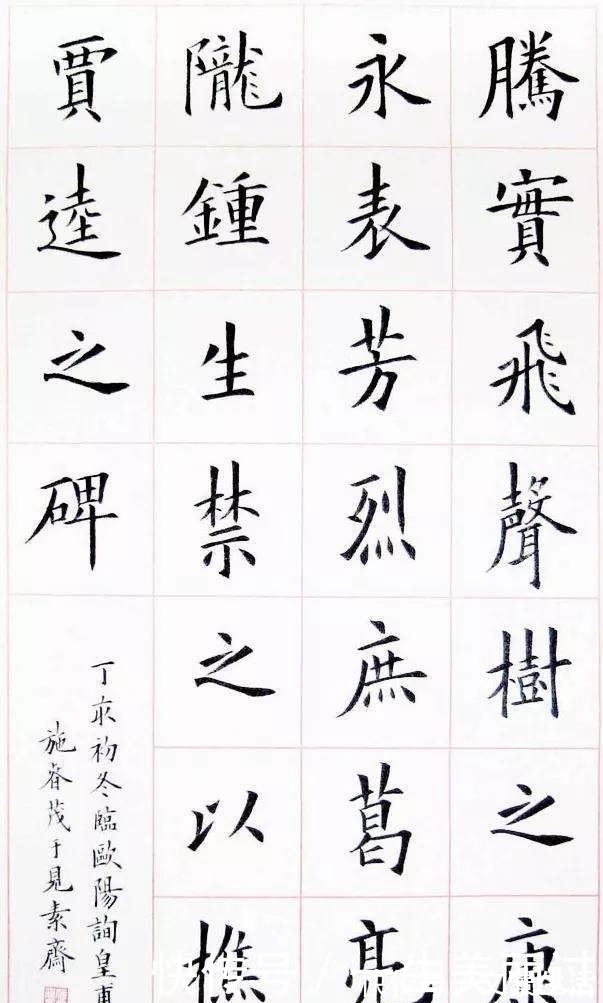 騰實飛聲樹之方
永表芳烈庶葛亮
隴鍾生禁之以樵
賈逵之碑
丁亥初冬臨歐陽詢皇甫
施睿茂于見素齋
快传号 /